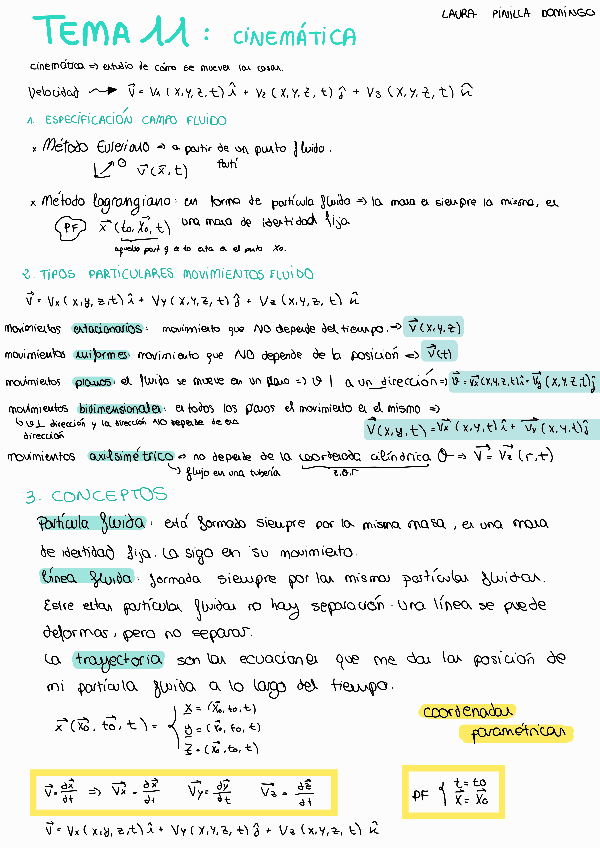 LAURA PINILLA DOMINGO
TEMA 11: CINEMÁTICA
cinemática => estudio de cómo se mueven las cosas.
Velocidad → V⃗ = V₁ (x,y,z,t) î + V₂ (x,y,z,t) ĵ + V₃ (x,y,z,t) k̂
1. ESPECIFICACIÓN CAMPO FLUIDO
× Método Euleriano → a partir de un punto fluido.
O v⃗(x⃗,t) Partí
× Método lagrangiano: en forma de partícula fluida => la masa es siempre la misma, es
PF x⃗(t₀, x⃗₀, t) una masa de identidad fija
aquella part q a to esta en el punto x₀.
2. TIPOS PARTICULARES MOVIMIENTOS FLUIDO
V⃗ = Vx (x,y,z,t) î + Vy (x,y,z,t) ĵ + Vz (x,y,z,t) k̂
movimientos estacionarios: movimiento que NO depende del tiempo. → V⃗(x,y,z)
movimientos uniformes movimiento que NO depende de la posición => V⃗(t)
movimientos planos: el fluido se mueve en un plano => v ⊥ a un dirección => v⃗ = Vx (x,y,z,t) î + Vy (x,y,z,t) ĵ
movimientos bidimensionales: en todos los planos el movimiento es el mismo =>
↳ v ⊥ dirección y la dirección NO depende de esa
dirección
V⃗(x,y,t) = Vx (x,y,t) î + Vy (x,y,t) ĵ
movimientos axilsimétrico → no depende de la coordenada cilíndrica θ → V⃗ = Vz (r,t)
↳ flujo en una tubería z,θ,r
3. CONCEPTOS
Partícula fluida: está formado siempre por la misma masa, es una masa
de identidad fija. La sigo en su movimiento.
Línea fluida: formada siempre por las mismas partículas fluidas.
Entre estas partículas fluidas no hay separación. Una línea se puede
deformar, pero no separar.
La trayectoria son las ecuaciones que me dan las posición de
mi partícula fluida a lo largo del tiempo.
x⃗(x⃗₀, t₀, t) = {
x = (x⃗₀, t₀, t)
y = (x⃗₀, t₀, t)
z = (x⃗₀, t₀, t)
coordenadas
paramétricas
V⃗ = ∂x⃗/∂t => V⃗x = ∂x⃗/∂t V⃗y = ∂y⃗/∂t V⃗z = ∂z⃗/∂t
PF { t = t₀
x⃗ = x⃗₀
V⃗ = Vx (x,y,z,t) î + Vy (x,y,z,t) ĵ + Vz (x,y,z,t) k̂